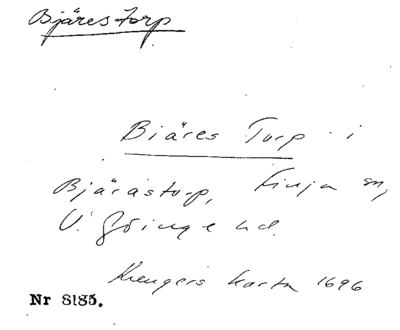 Bjärestorp
Biäres Torp i
Bjärastorp, Finja sn,
V. Göinge hd.
Kreugers karta 1696
Nr 8185.